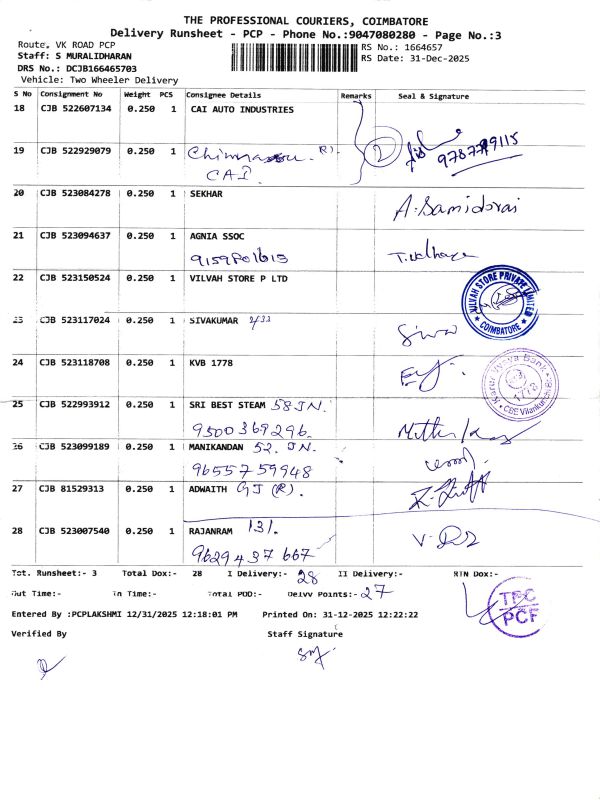 THE PROFESSIONAL COURIERS, COIMBATORE
Delivery Runsheet - PCP - Phone No.:9047080280 - Page No.:3
Route. VK ROAD PCP
RS No.: 1664657
Staff: S MURALIDHARAN
RS Date: 31-Dec-2025
DRS No.: DCJB166465703
Vehicle: Two Wheeler Delivery
S No Consignment No Weight PCS Consignee Details Remarks Seal & Signature
18 CJB 522607134 0.250 1 CAI AUTO INDUSTRIES
2
19 CJB 522929079 0.250 1 (R)
CAI
20 CJB 523084278 0.250 1 SEKHAR
A. Samidorai
21 CJB 523094637 0.250 1 AGNIA SSOC
22 CJB 523150524 0.250 1 VILVAH STORE P LTD
VILVAH STORE PRIVATE LIMITED
COIMBATORE
23 CJB 523117024 0.250 1 SIVAKUMAR
Siva
24 CJB 523118708 0.250 1 KVB 1778
Karur Vysya Bank
1778
25 CJB 522993912 0.250 1 SRI BEST STEAM 58 JN.
9500369296.
26 CJB 523099189 0.250 1 MANIKANDAN 52. JN.
9655759948
27 CJB 81529313 0.250 1 ADWAITH GJ (R).
28 CJB 523007540 0.250 1 RAJANRAM 131.
9629437667
Tot. Runsheet:- 3 Total Dox:- 28 I Delivery:- 28 II Delivery:- RTN Dox:-
Out Time:- In Time:- Total POD:- Delvv Points:- 27
TPC
PCF
Entered By :PCPLAKSHMI 12/31/2025 12:18:01 PM Printed On: 31-12-2025 12:22:22
Verified By Staff Signature